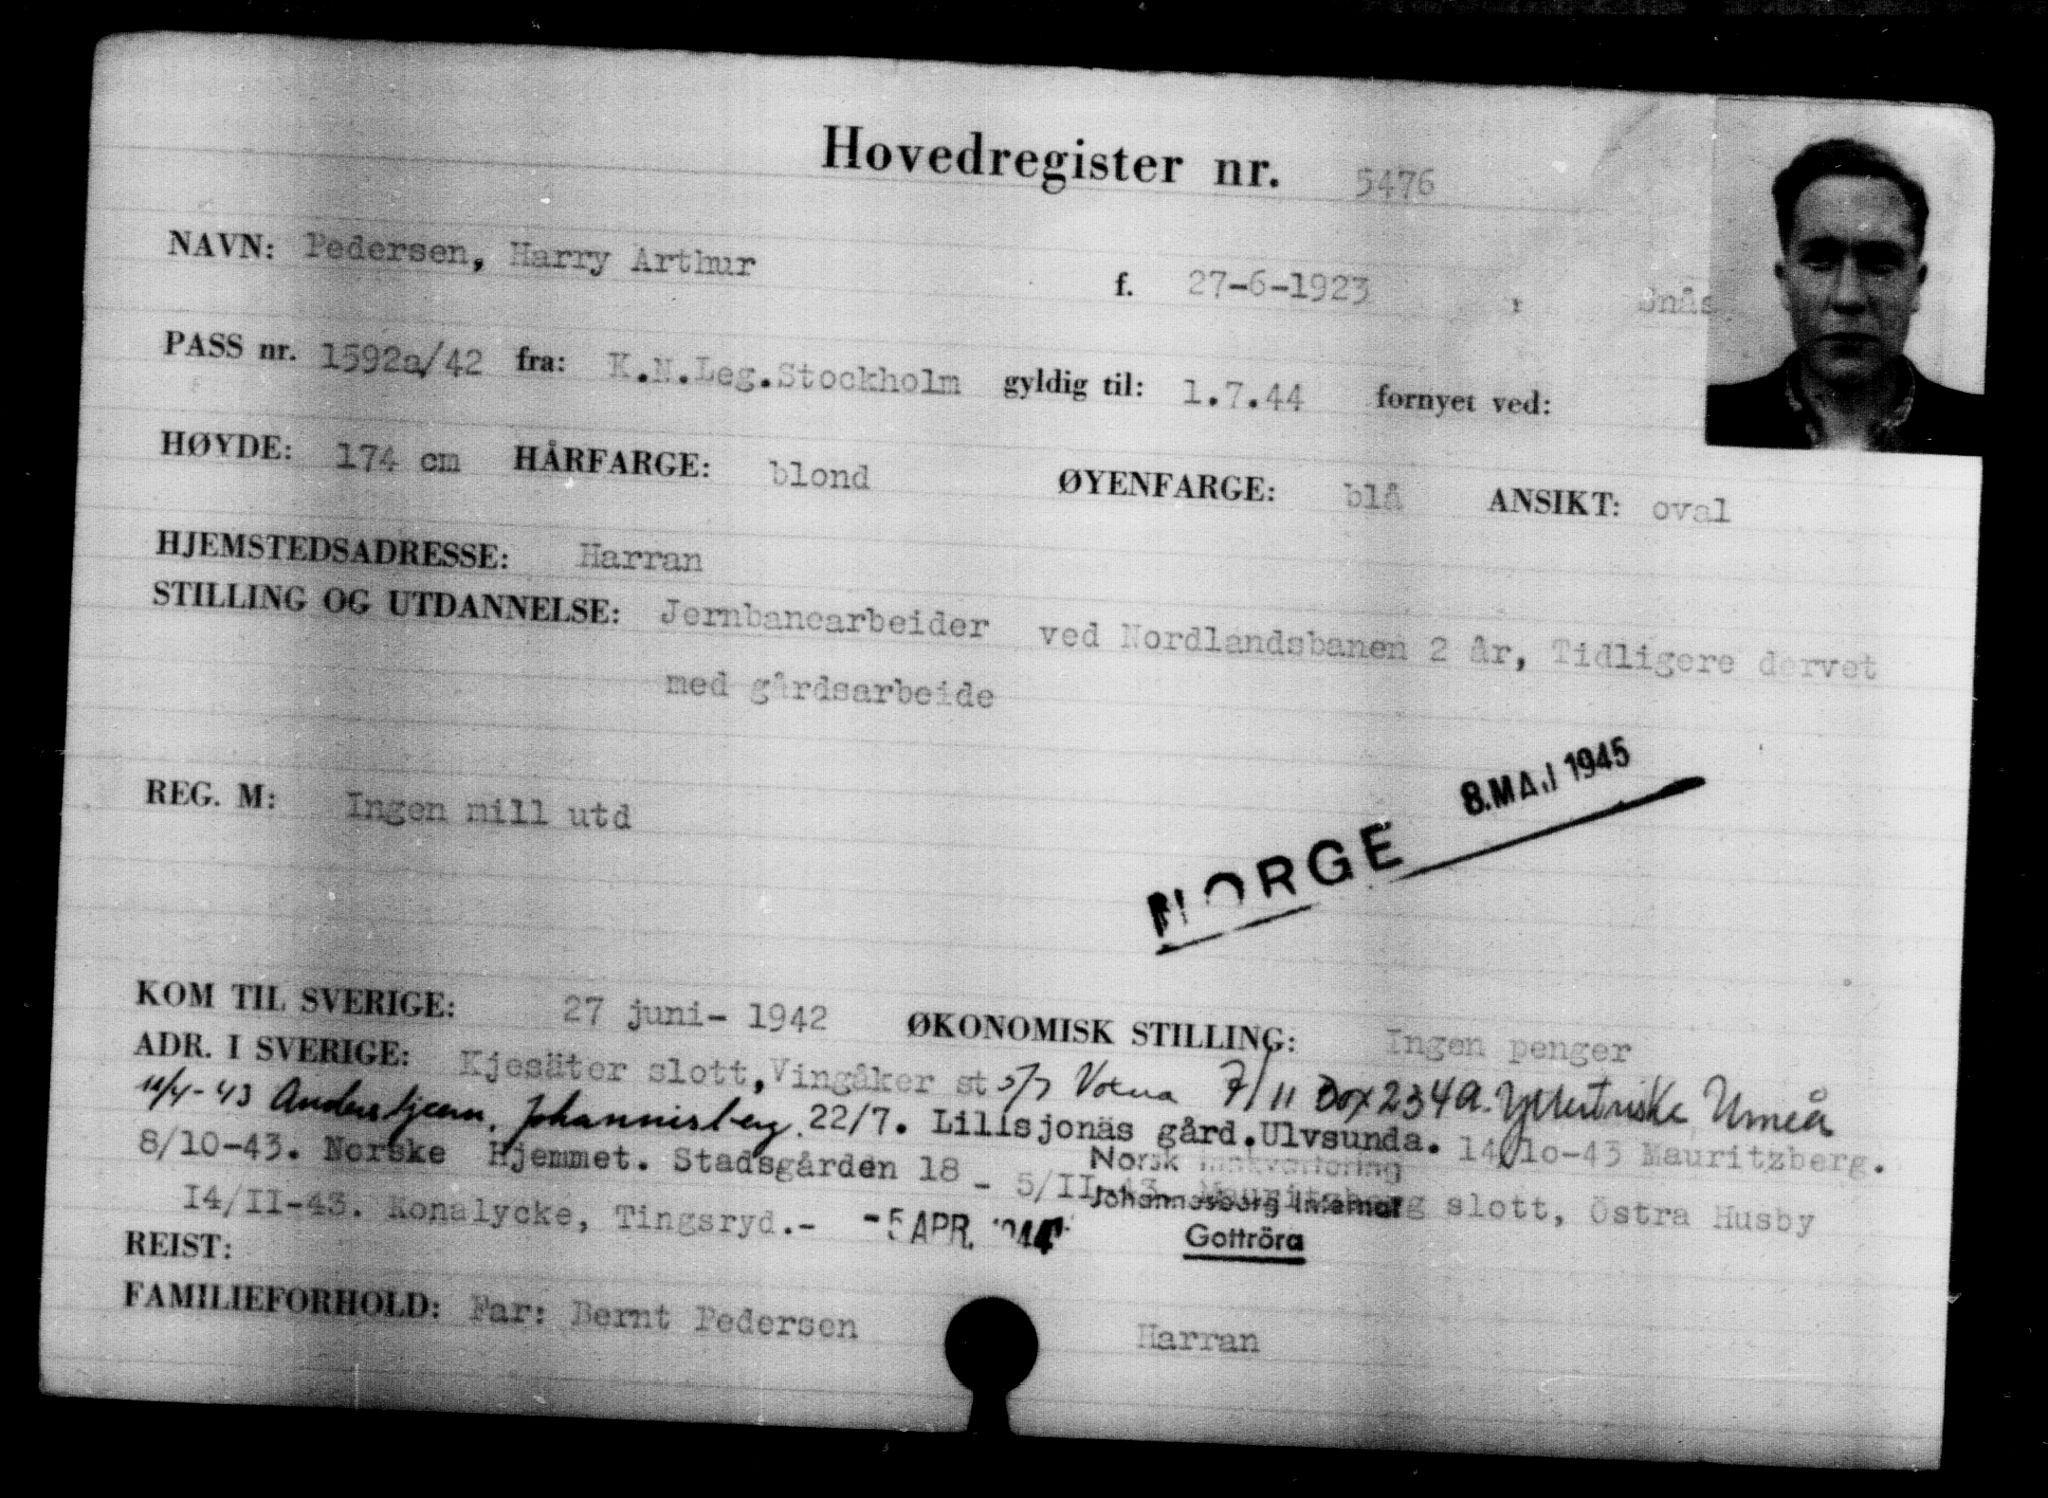 Hovedregister nr. 5476
NAVN: Pedersen, Harry Arthur f. 27-6-1923 i Snås
PASS nr. 1592a/42 fra: K.N.Leg.Stockholm gyldig til: 1.7.44 fornyet ved:
HØYDE: 174 cm HÅRFARGE: blond ØYENFARGE: blå ANSIKT: oval
HJEMSTEDSADRESSE: Harran
STILLING OG UTDANNELSE: Jernbanearbeider ved Nordlandsbanen 2 år, Tidligere dervet
med gårdsarbeide
8.MAJ 1945
REG. M: Ingen mill utd
NORGE
KOM TIL SVERIGE: 27 juni- 1942 ØKONOMISK STILLING: Ingen penger
ADR. I SVERIGE: Kjesäter slott, Vingåker st 5/7 Votna 7/11 Box 234A. Umeå
11/4-43 Johannisberg. 22/7. Lillsjonäs gård. Ulvsunda. 14/10-43 Mauritzberg.
8/10-43. Norske Hjemmet. Stadsgården 18 - 5/II-43. Mauritzberg slott, Östra Husby
Norsk Innkvartering
Johannesberg Internat
14/II-43. Konalycke, Tingsryd.- -5 APR. 1944
Gottröra
REIST:
FAMILIEFORHOLD: Far: Bernt Pedersen Harran